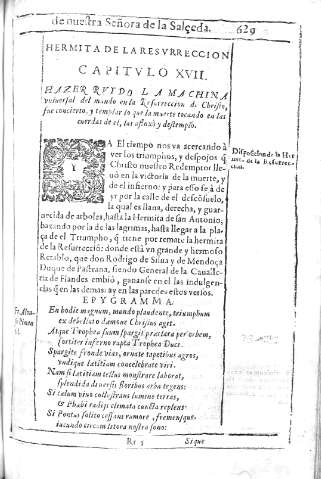 de nuestra Señora de la Salçeda. 629
HERMITA DE LA RESVRRECCION
CAPITVLO XVII.
HAZER RVIDO LA MACHINA
vniuersal del mundo en la Resurreccion de Christo,
fue concierto, y templar lo que la muerte tocando en las
cuerdas de el, las afloxò y destemplò.
YA El tiempo nos va acercando à
ver los triumphos, y despojos q̃
Christo nuestro Redemptor lle
uò en la victoria de la muerte, y
de el infierno: y para esso se à de
yr por la calle de el desconsuelo,
la qual es llana, derecha, y guar-
necida de arboles, hasta la Hermita de san Antonio,
baxando por la de las lagrimas, hasta llegar a la pla-
ça de el Triumpho, q̃ tiene por remate la hermita
de la Resurrecciò: donde està vn grande y hermoso
Retablo, que don Rodrigo de Silua y de Mendoça
Duque de Pastrana, siendo General de la Caualle-
ria de Flandes embiò, gananse en el las indulgen-
cias q̃ en las demas: ay en las paredes estos versos.
Disposicion de la Her
de la Resurrec-
cion.
EPYGRAMMA.
En hodie magnum, mundo plaudente, triumphum
ex debellato dæmone Christus aget.
Atque Trophea suum spargit præclara per orbem,
fortiter inferno rapta Trophea Duce.
Spargite fronde vias, ornate tapetibus agros,
vndique lætitiam concelebrate viri.
Nam si lætitiam tellus monstrare laborat,
splendida diuersis floribus arua tegens:
Si cælum viuo collustrans lumine terras,
& Phæbi radijs climata cuncta replent
Si Pontus solito cessans rumore, fremensque
iucundo circum litora nostra sono:
Rr 3 Sique